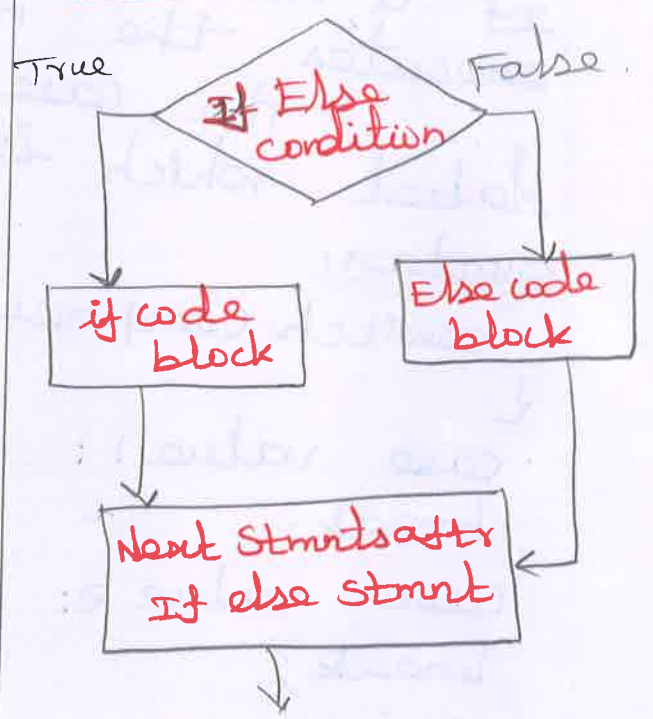 True
False.
If Else
condition
if code
block
Else code
block
Next Stmntsaftr
If else stmnt